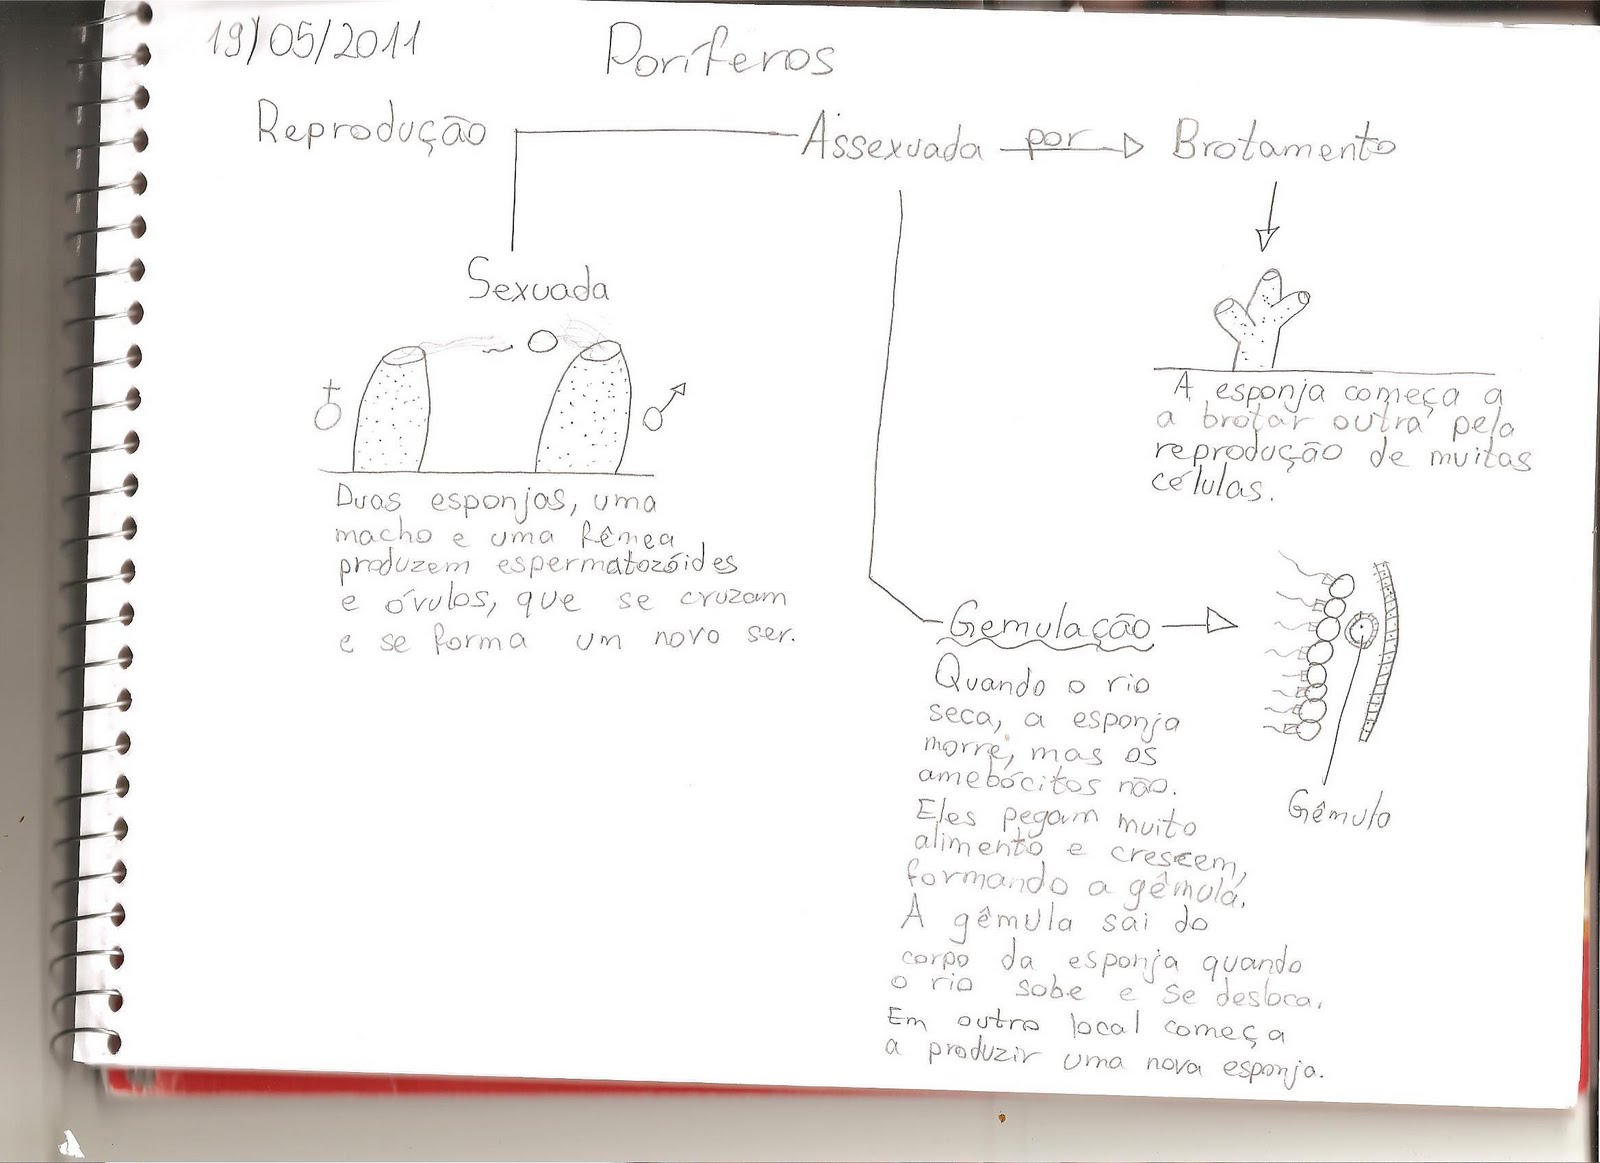 19/05/2011
Poríferos
Reprodução
Assexuada por Brotamento
Sexuada
Duas esponjas, uma
macho e uma fêmea
produzem espermatozóides
e óvulos, que se cruzam
e se forma um novo ser.
A esponja começa a
a brotar outra pela
reprodução de muitas
células.
Gemulação
Quando o rio
seca, a esponja
morre, mas os
amebócitos não.
Eles pegam muito
alimento e crescem,
formando a gêmula.
A gêmula sai do
corpo da esponja quando
o rio sobe e se desloca.
Em outro local começa
a produzir uma nova esponja.
Gêmulo